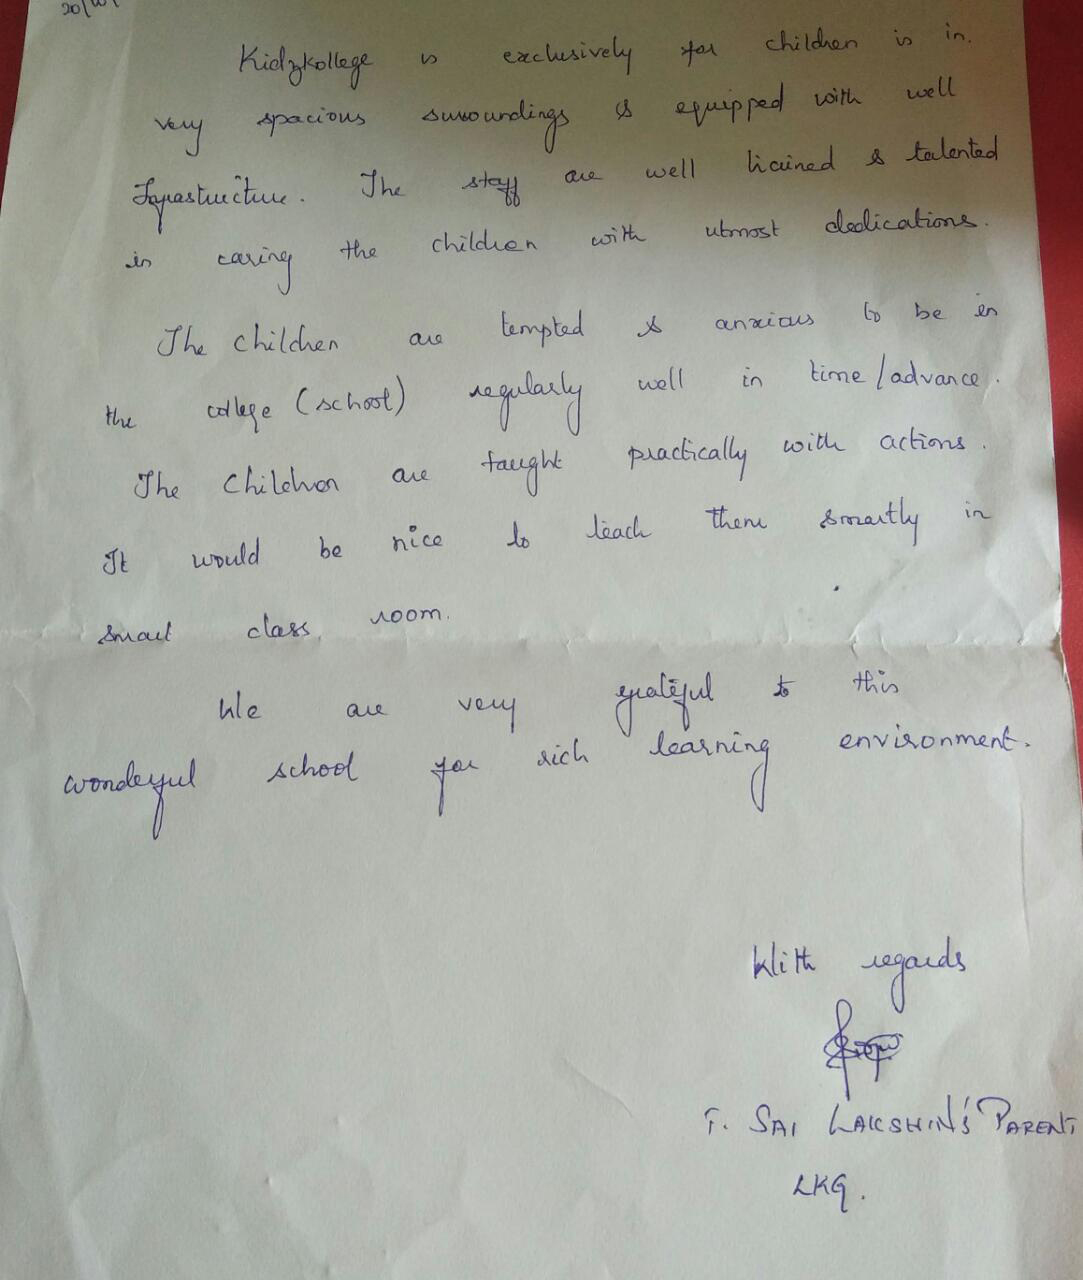 Kidzkollege is exclusively for children is in.
very spacious surroundings & equipped with well
Infrastructure. The staff are well trained & talented
in caring the children with utmost dedications.
The children are tempted & anxious to be in
the college (school) regularly well in time/advance.
The children are taught practically with actions.
It would be nice to teach them smartly in
smart class, room.
We are very grateful to this
wonderful school for rich learning environment.
With regards
T. SAI LAKSHIN'S PARENT
LKG.